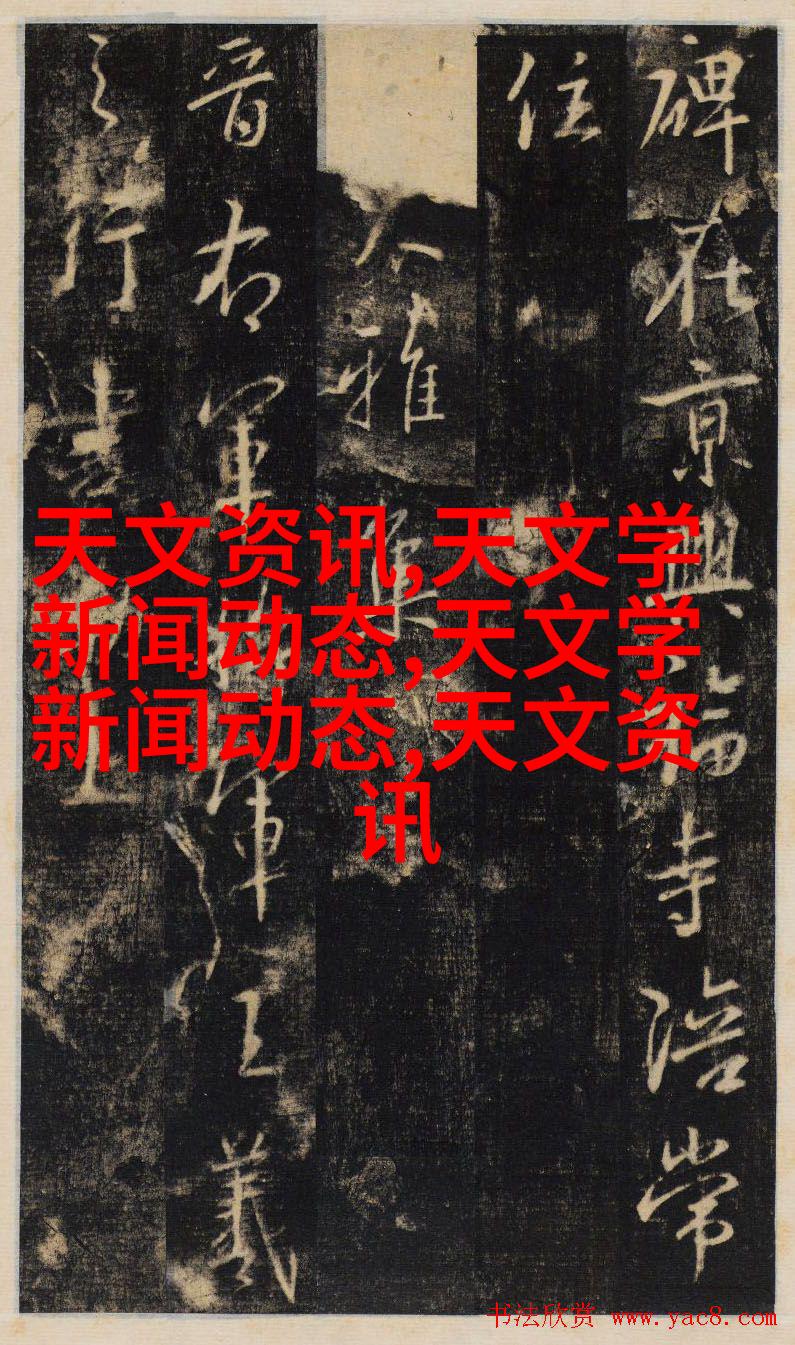 碑在京興福寺陪常
住
大雅集
晋右軍將軍王羲
之行書勒上
天文资讯,天文学
新闻动态,天文学
新闻动态,天文资
讯
书法欣赏 www.yac8.com